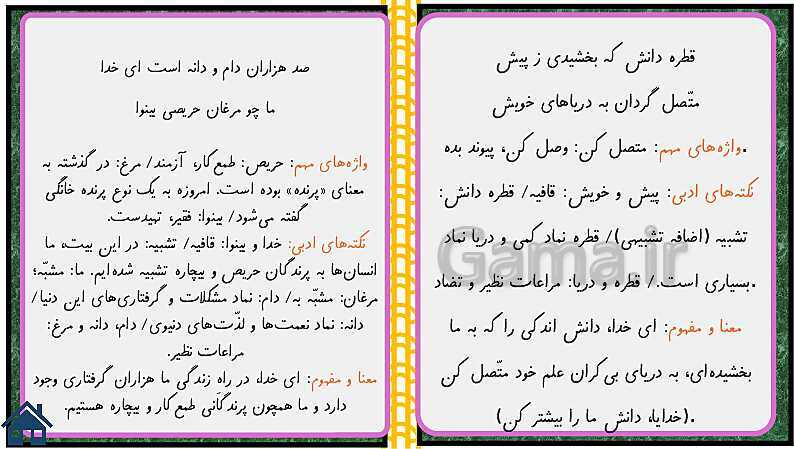 قطره دانش که بخشیدی ز پیش
متّصل گردان به دریاهای خویش
.واژه‌های مهم: متصل کن: وصل کن، پیوند بده
نکته‌های ادبی: پیش و خویش: قافیه/ قطره دانش:
تشبیه (اضافه تشبیهی)/ قطره نماد کمی و دریا نماد
.بسیاری است./ قطره و دریا: مراعات نظیر و تضاد
معنا و مفهوم: ای خدا، دانش اندکی را که به ما
بخشیده‌ای، به دریای بی‌کران علم خود متّصل کن
.(خدایا، دانش ما را بیشتر کن)
صد هزاران دام و دانه است ای خدا
ما چو مرغان حریصی بینوا
واژه‌های مهم: حریص: طمع‌کار، آزمند/ مرغ: در گذشته به
معنای «پرنده» بوده است. امروزه به یک نوع پرنده خانگی
گفته می‌شود/ بینوا: فقیر، تهیدست.
نکته‌های ادبی: خدا و بینوا: قافیه/ تشبیه: در این بیت، ما
انسان‌ها به پرندگان حریص و بیچاره تشبیه شده‌ایم. ما: مشبّه؛
مرغان: مشبّه به/ دام: نماد مشکلات و گرفتاری‌های این دنیا/
دانه: نماد نعمت‌ها و لذّت‌های دنیوی/ دام، دانه و مرغ:
مراعات نظیر.
معنا و مفهوم: ای خدا، در راه زندگی ما هزاران گرفتاری وجود
دارد و ما همچون پرندگانی طمع‌کار و بیچاره هستیم.
Gama.ir